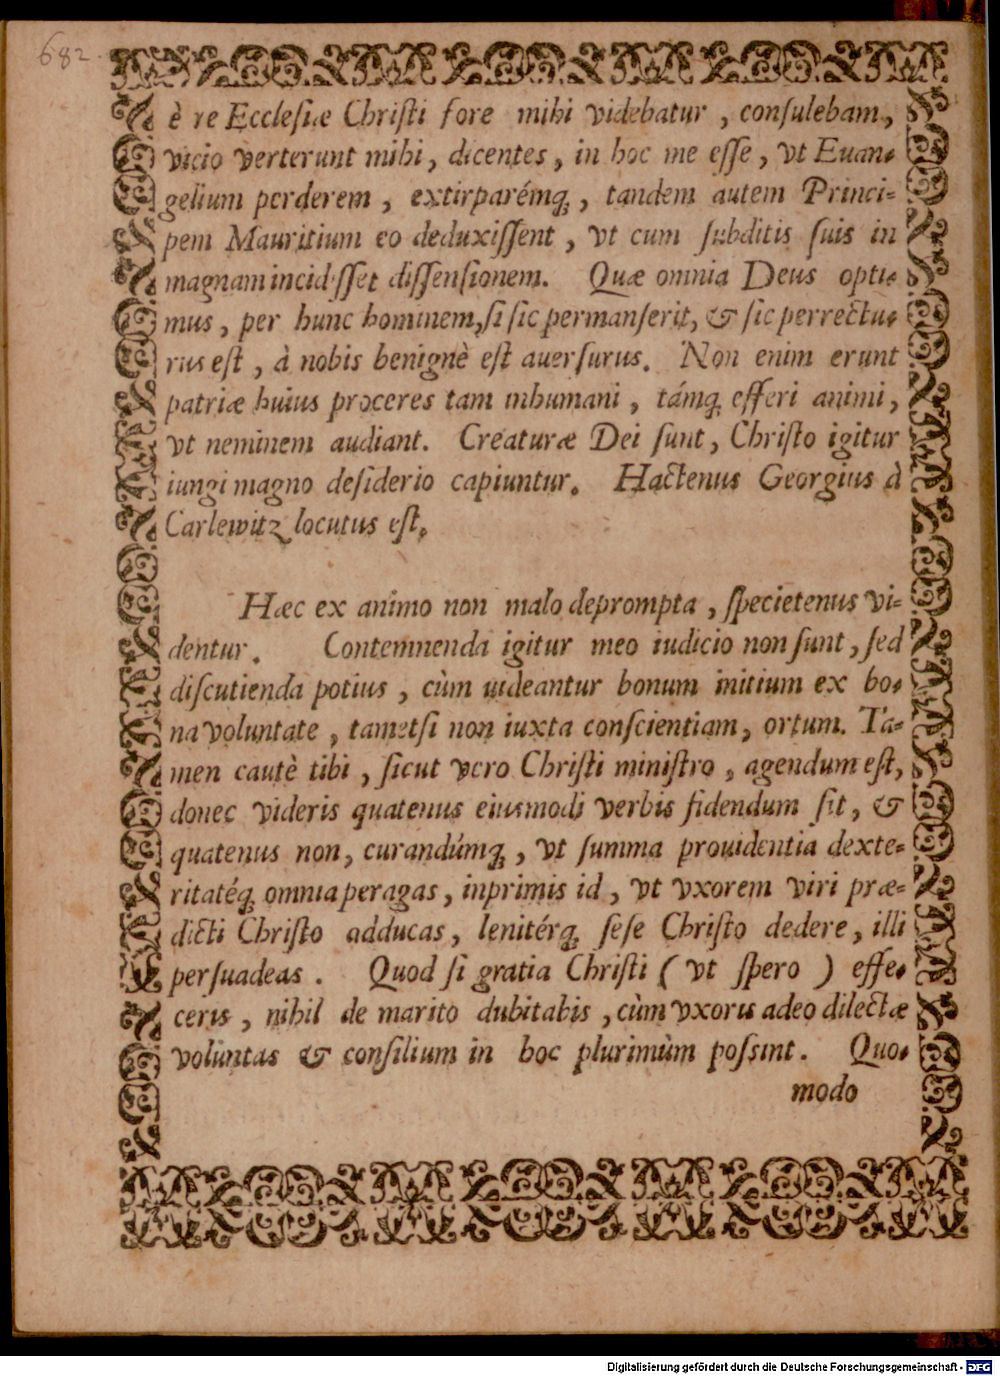 682.
è re Ecclesiæ Christi fore mihi videbatur, consulebam,
vicio verterunt mihi, dicentes, in hoc me esse, vt Euan-
gelium perderem, extirparémq;, tandem autem Princi-
pem Mauritium eo deduxissent, vt cum subditis suis in
magnam incidisset dissensionem. Quæ omnia Deus opti-
mus, per hunc hominem, si sic permanserit, & sic perrectu-
rus est, à nobis benignè est auersurus. Non enim erunt
patriæ huius proceres tam inhumani, támq; efferi animi,
vt neminem audiant. Creaturæ Dei sunt, Christo igitur
iungi magno desiderio capiuntur. Hactenus Georgius à
Carlewitz locutus est.
Hæc ex animo non malo deprompta, specietenus vi-
dentur. Contemnenda igitur meo iudicio non sunt, sed
discutienda potius, cùm uideantur bonum initium ex bo-
na voluntate, tametsi non iuxta conscientiam, ortum. Ta-
men cautè tibi, sicut vero Christi ministro, agendum est,
donec videris quatenus eiusmodi verbis fidendum sit, &
quatenus non, curandúmq;, vt summa prouidentia dexte-
ritatéq; omnia peragas, inprimis id, vt vxorem viri præ-
dicti Christo adducas, lenitérq; sese Christo dedere, illi
persuadeas. Quod si gratia Christi (vt spero) effe-
ceris, nihil de marito dubitabis, cùm vxoris adeo dilectæ
voluntas & consilium in hoc plurimùm possint. Quo-
modo
Digitalisierung gefördert durch die Deutsche Forschungsgemeinschaft - DFG